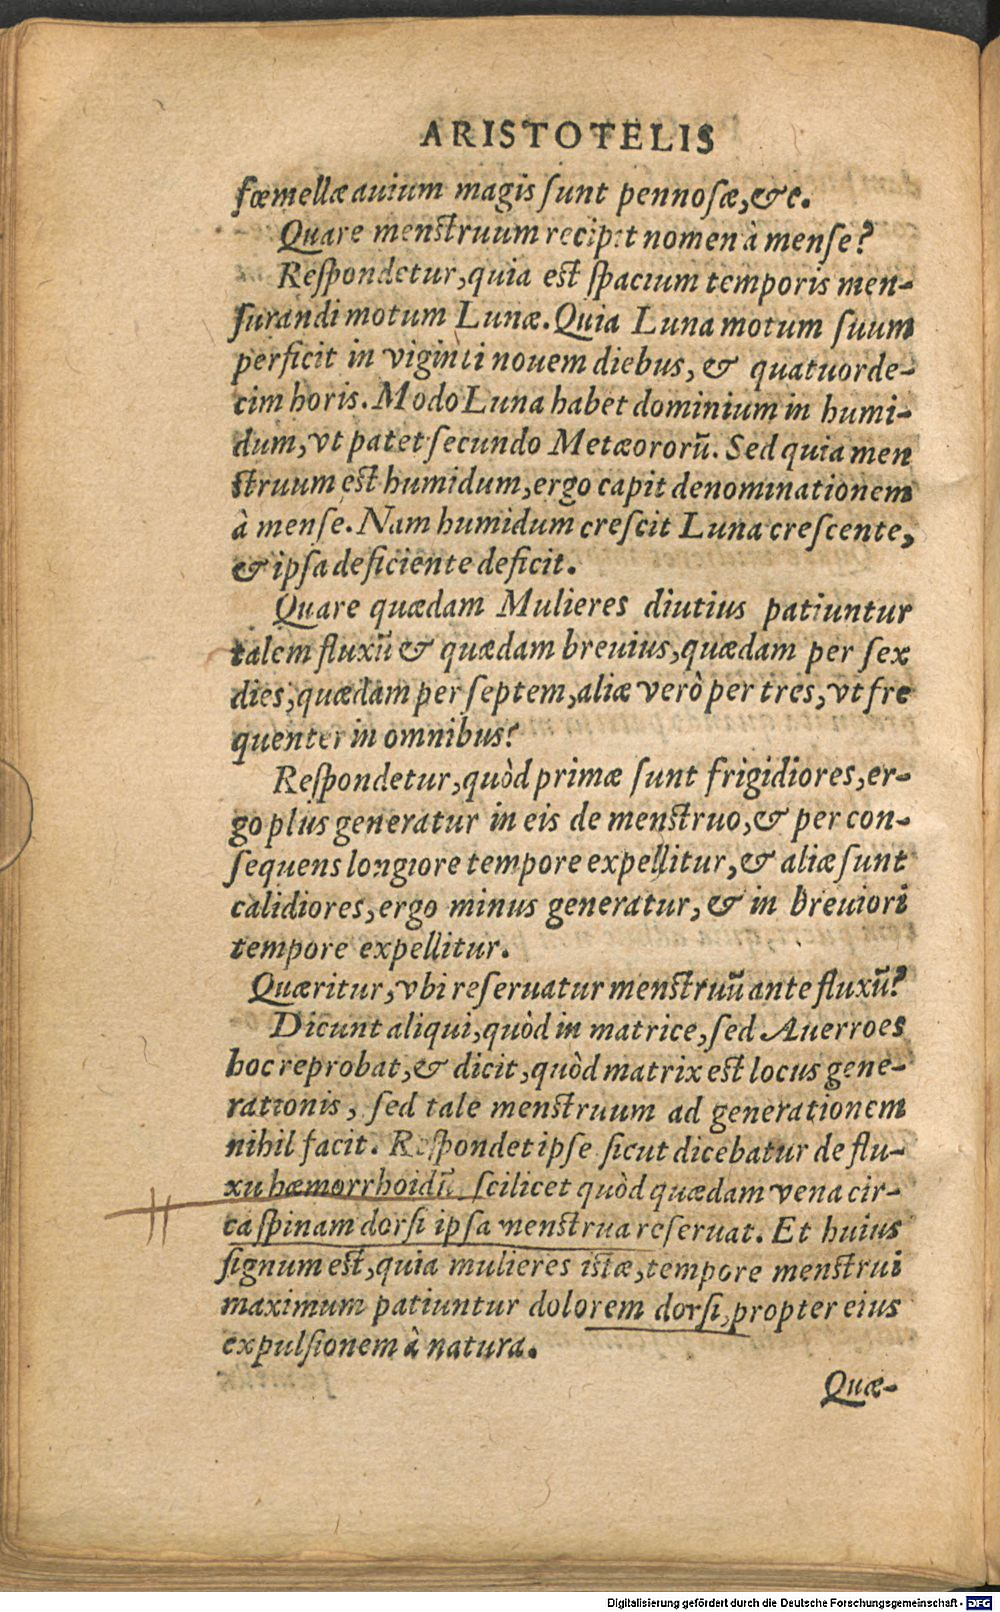 ARISTOTELIS
fœmellæ auium magis ſunt pennoſæ, &c.
Quare menſtruum recipit nomen à menſe?
Reſpondetur, quia eſt ſpacium temporis men-
ſurandi motum Lunæ. Quia Luna motum ſuum
perficit in viginti nouem diebus, & quatuorde-
cim horis. Modo Luna habet dominium in humi-
dum, vt patet ſecundo Metæororũ. Sed quia men
ſtruum eſt humidum, ergo capit denominationem
à menſe. Nam humidum creſcit Luna creſcente,
& ipſa deficiente deficit.
Quare quædam Mulieres diutius patiuntur
talem fluxũ & quædam breuius, quædam per ſex
dies, quædam per ſeptem, aliæ verò per tres, vt fre
quenter in omnibus?
Reſpondetur, quòd primæ ſunt frigidiores, er-
go plus generatur in eis de menſtruo, & per con-
ſequens longiore tempore expellitur, & aliæ ſunt
calidiores, ergo minus generatur, & in breuiori
tempore expellitur.
Quæritur, vbi reſeruatur menſtruũ ante fluxũ?
Dicunt aliqui, quòd in matrice, ſed Auerroes
hoc reprobat, & dicit, quòd matrix eſt locus gene-
rationis, ſed tale menſtruum ad generationem
nihil facit. Reſpondet ipſe ſicut dicebatur de flu-
xu hæmorrhoidũ, ſcilicet quòd quædam vena cir-
ca ſpinam dorſi ipſa menſtrua reſeruat. Et huius
ſignum eſt, quia mulieres iſtæ, tempore menſtrui
maximum patiuntur dolorem dorſi, propter eius
expulſionem à natura.
Quæ-
Digitalisierung gefördert durch die Deutsche Forschungsgemeinschaft - DFG